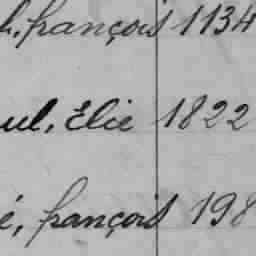 h, françois 1134
ul, Elie 1822
é, françois 198